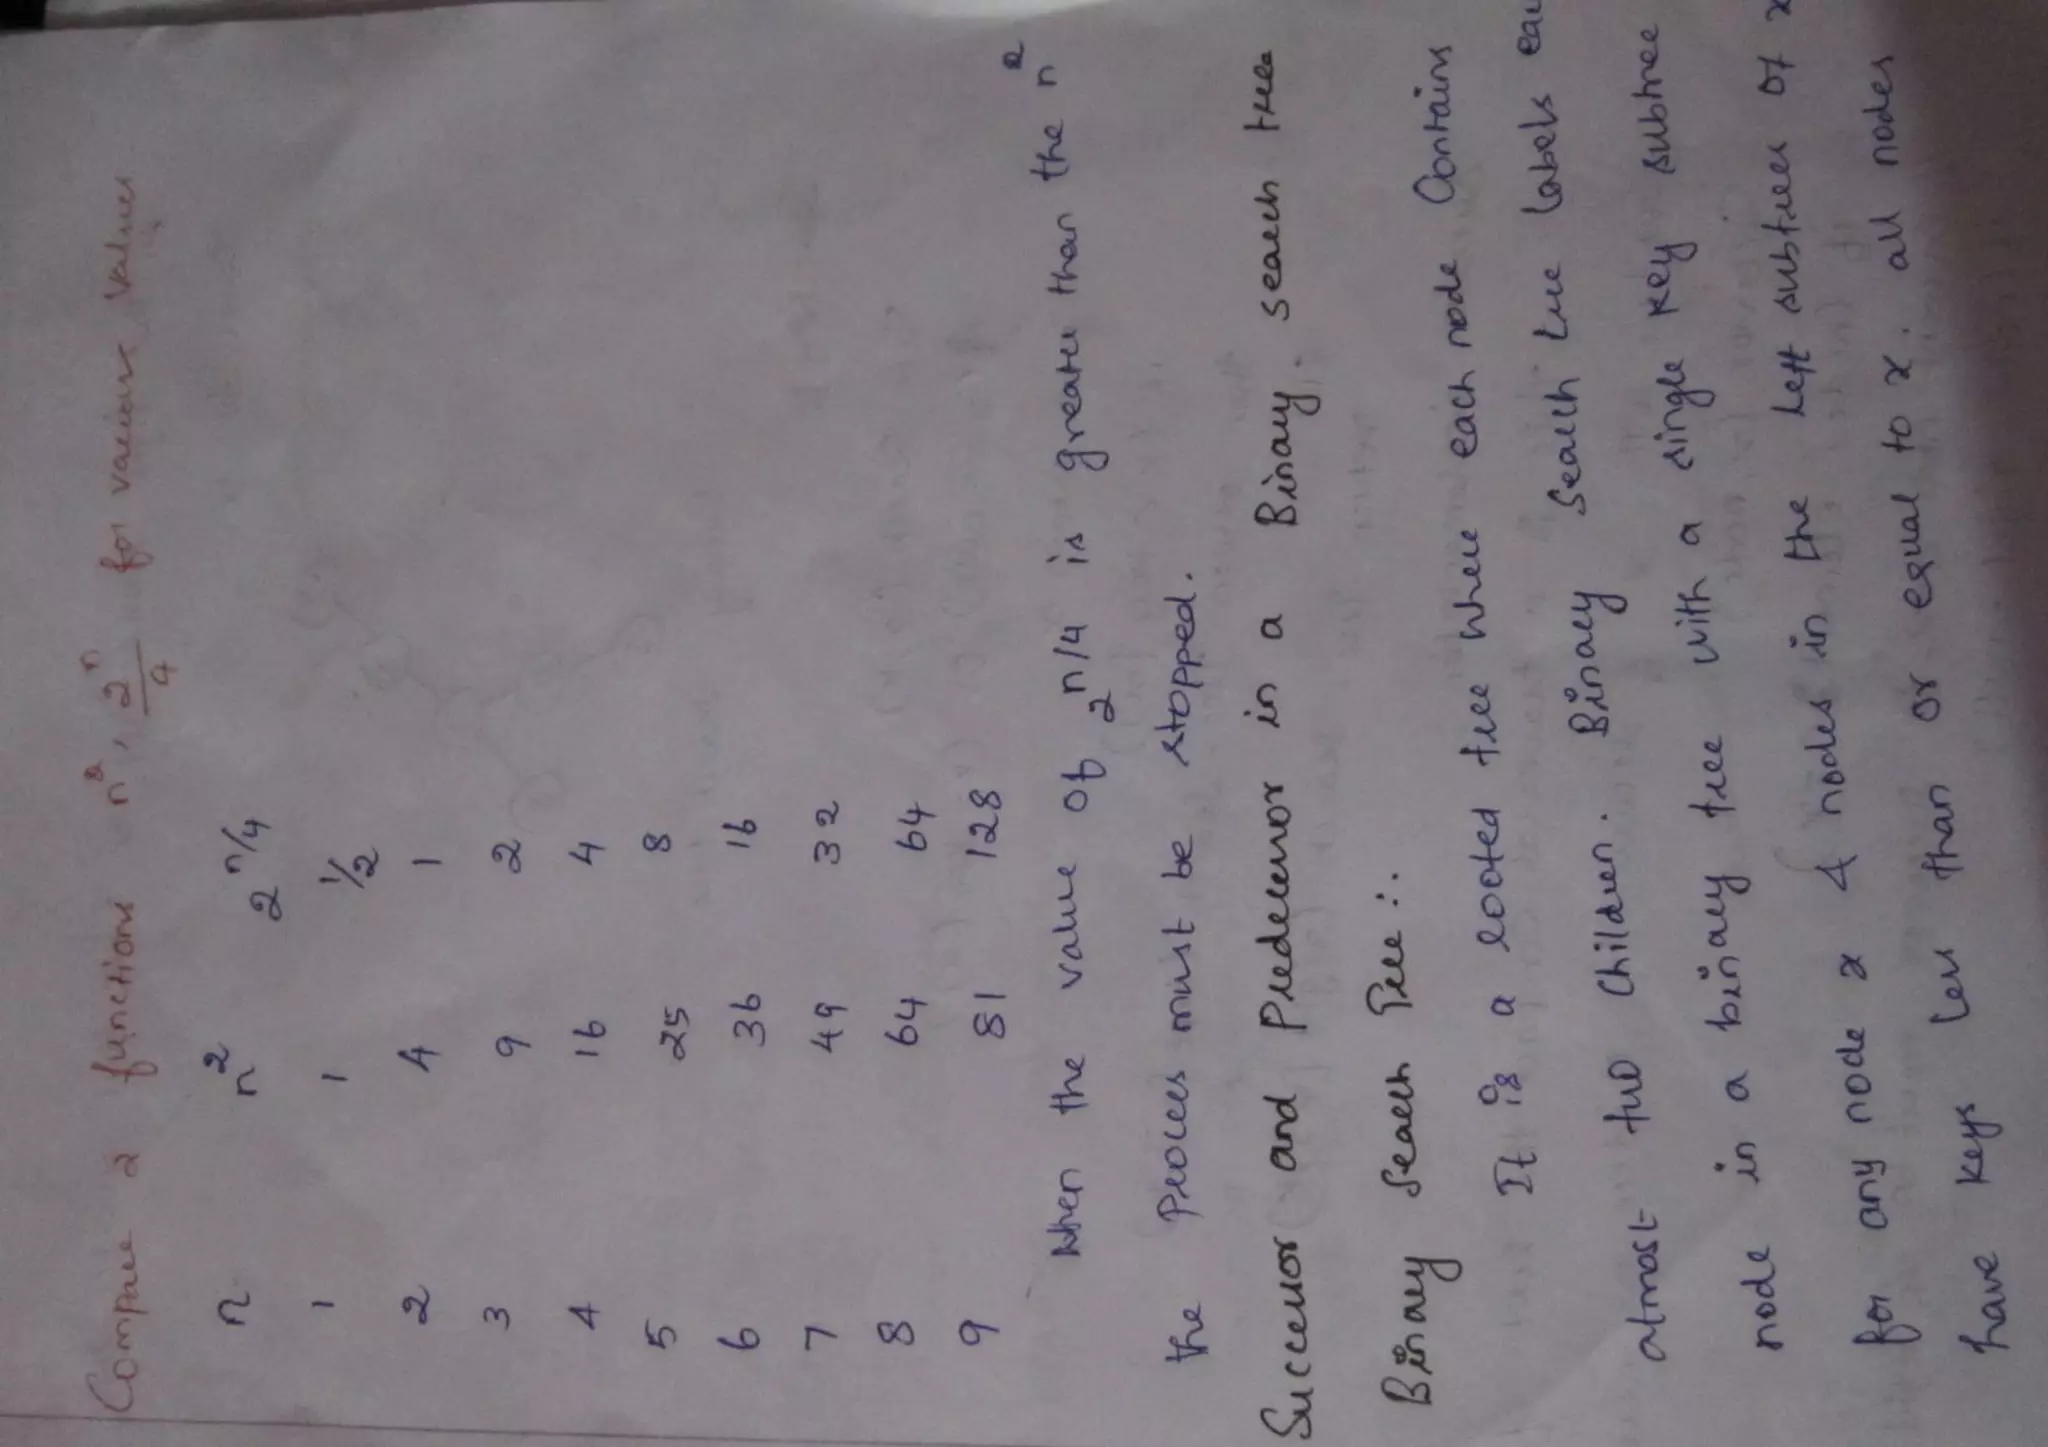 Compare 2 functions n², 2ⁿ/4 for various values
n n² 2ⁿ/4
1 1 1/2
2 4 1
3 9 2
4 16 4
5 25 8
6 36 16
7 49 32
8 64 64
9 81 128
When the value of 2ⁿ/4 is greater than the n²
the process must be stopped.
Successor and Predecessor in a Binary search tree
Binary Search Tree:.
It is a rooted tree where each node contains
atmost two children. Binary Search tree labels
node in a binary tree with a single key subtree
for any node x & nodes in the left subtree of x
have keys less than or equal to x. all nodes